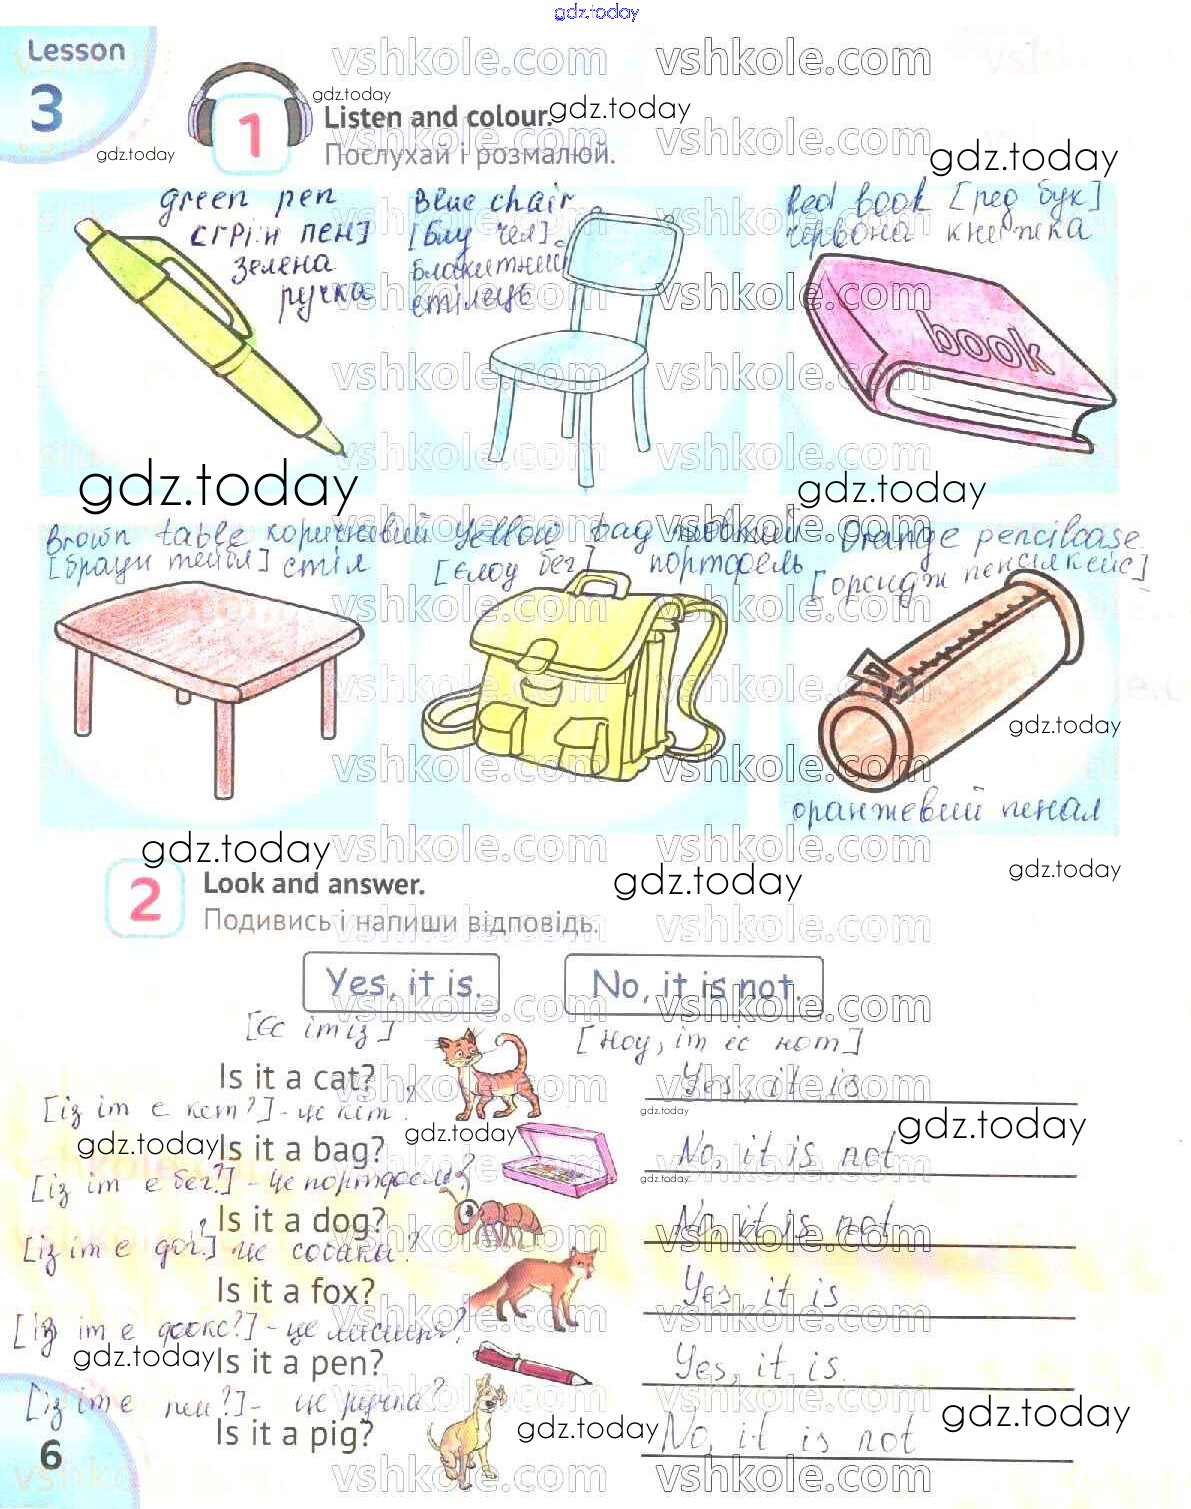 gdz.today
Lesson
3
1
Listen and colour.
Послухай і розмалюй.
green pen
[грін пен]
зелена
ручка
Blue chair
[блу чея]
блакитний
стілець
Red book [ред бук]
червона книжка
book
Brown table коричневий
[браун тейбл] стіл
Yellow bag жовтий
[єлоу бег] портфель
Orange pencilcase
[орендж пенсілкейс]
оранжевий пенал
2
Look and answer.
Подивись і напиши відповідь.
Yes, it is. No, it is not.
[Єс іт із] [Ноу, іт іс нот]
Is it a cat? Yes, it is
[із іт е кет?] - це кіт?
Is it a bag? No, it is not
[із іт е бег?] - це портфель?
Is it a dog? No, it is not
[із іт е дог?] це собака?
Is it a fox? Yes, it is
[із іт е фокс?] - це лисиця?
Is it a pen? Yes, it is.
[із іт е пен?] - це ручка?
Is it a pig? No, it is not
6
vshkole.com